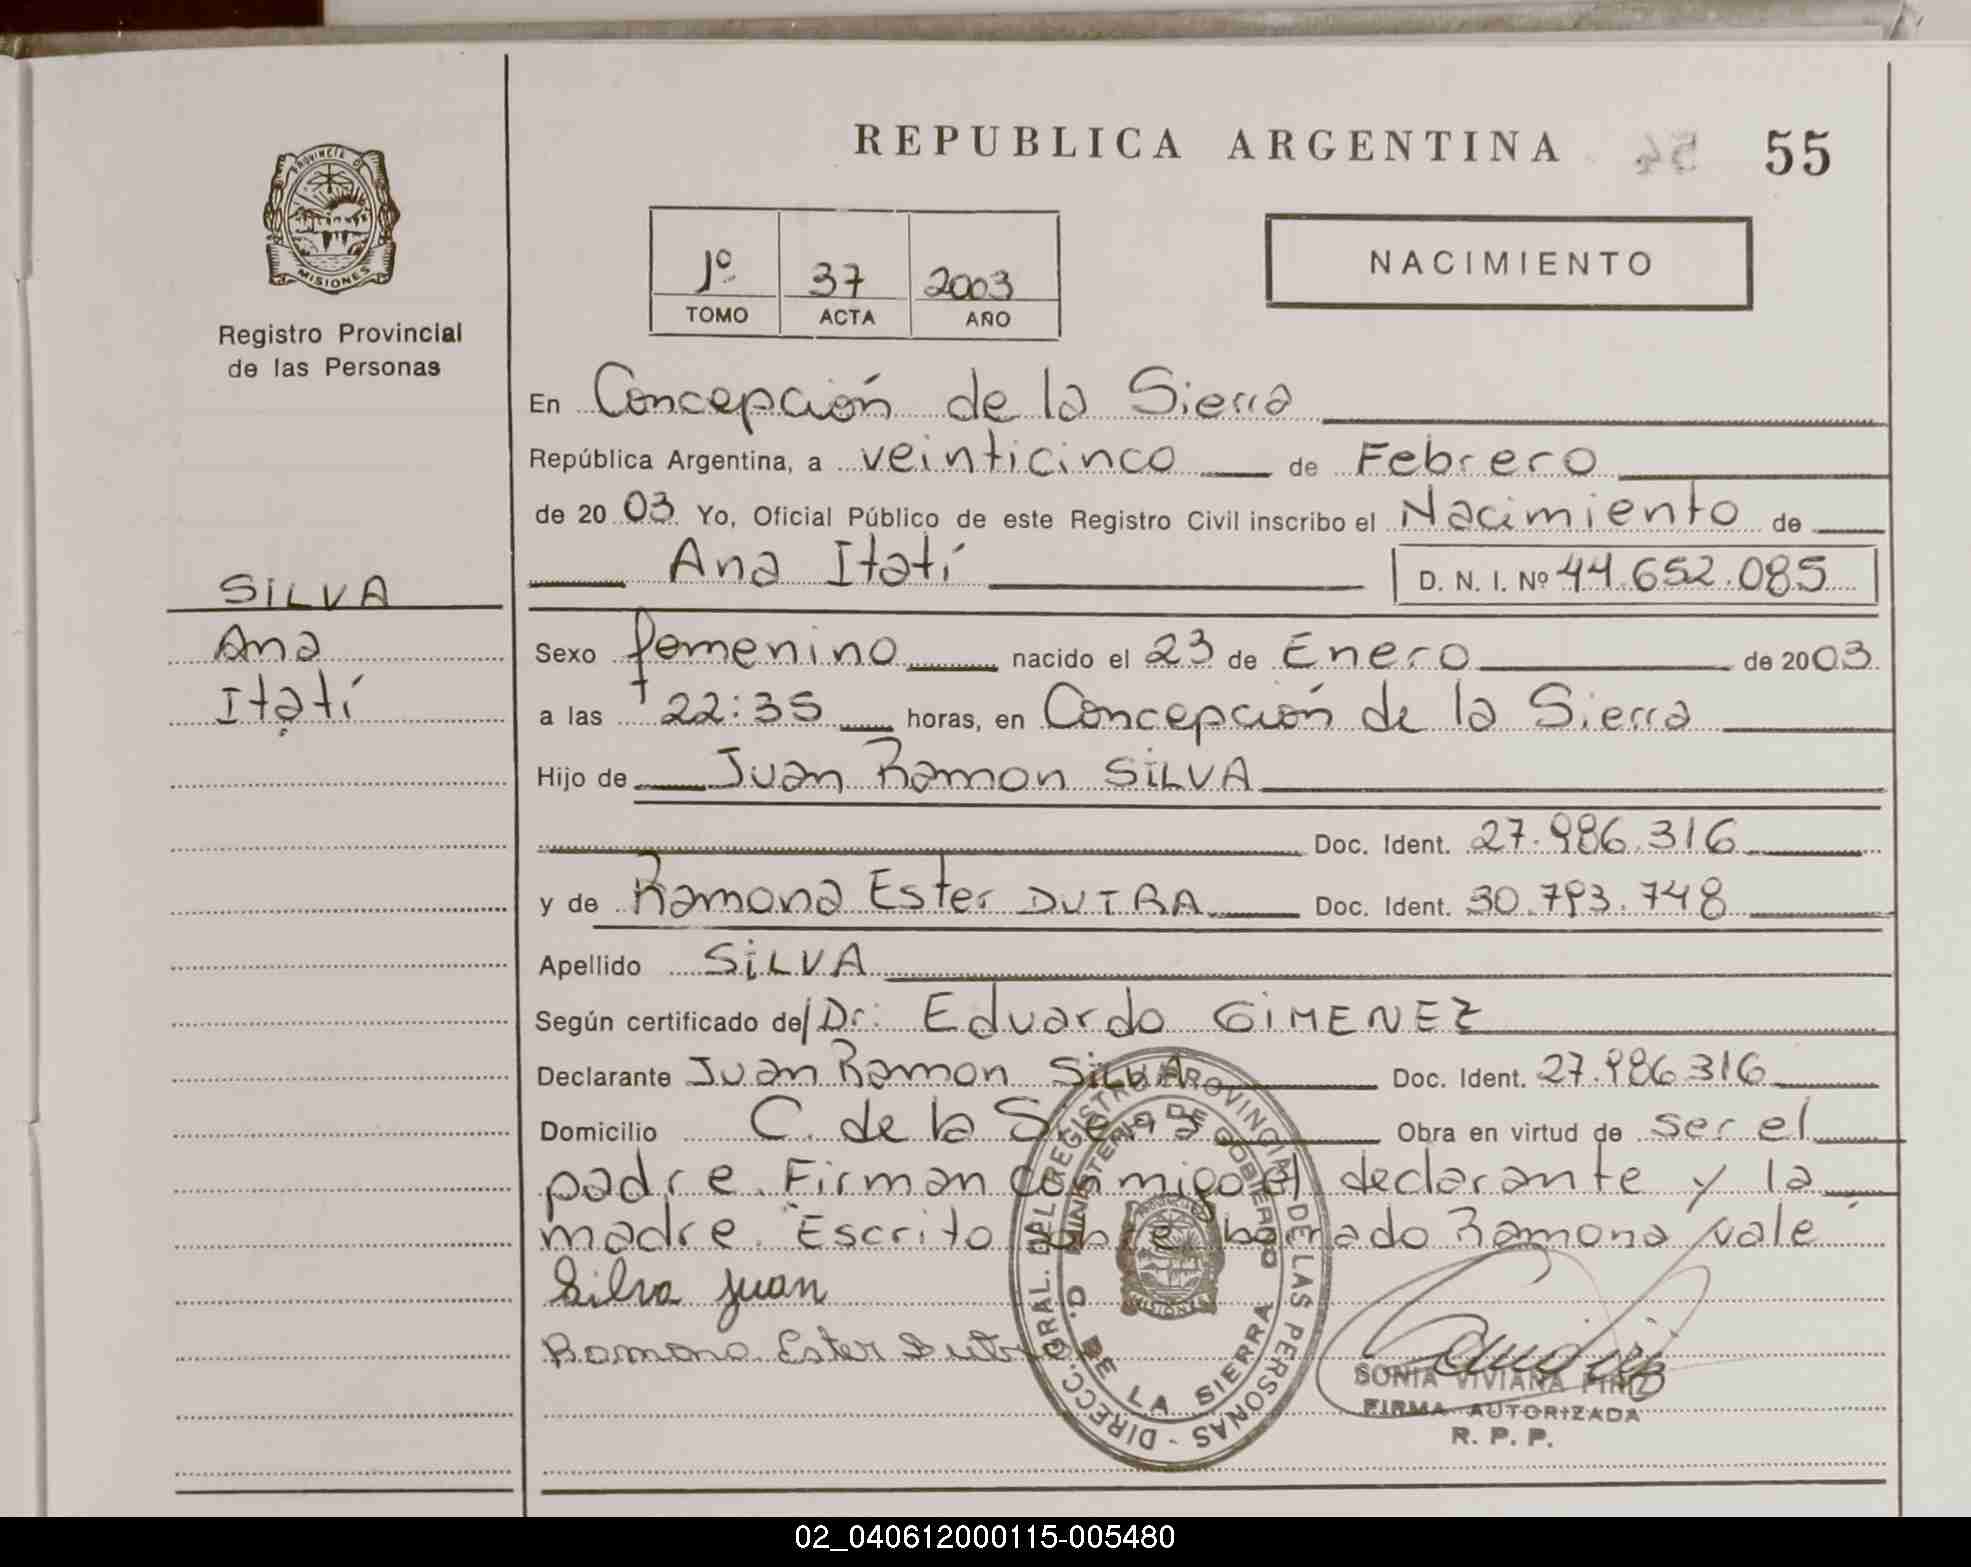 REPUBLICA ARGENTINA 54 55
PROVINCIA DE
MISIONES
Registro Provincial
de las Personas
1º 37 2003
TOMO ACTA AÑO
NACIMIENTO
En Concepción de la Sierra
República Argentina, a veinticinco de Febrero
de 2003 Yo, Oficial Público de este Registro Civil inscribo el Nacimiento de
Ana Itatí D. N. I. Nº 44.652.085
SILVA
Ana
Itatí
Sexo femenino nacido el 23 de Enero de 2003
a las 22:35 horas, en Concepción de la Sierra
Hijo de Juan Ramon SILVA
Doc. Ident. 27.986.316
y de Ramona Ester DUTRA Doc. Ident. 30.793.748
Apellido SILVA
Según certificado de/ Dr: Eduardo GIMENEZ
Declarante Juan Ramon SILVA Doc. Ident. 27.986.316
Domicilio C. de la Sierra Obra en virtud de ser el
padre. Firman conmigo el declarante y la
madre. Escrito sobre borrado Ramona vale
Silva Juan
Ramona Ester Dutra
DIRECC. GRAL. DEL REGISTRO PROVINCIAL DE LAS PERSONAS -
MINISTERIO DE GOBIERNO
C. DE LA SIERRA
MISIONES
SONIA VIVIANA PINIZ
FIRMA AUTORIZADA
R. P. P.
02_040612000115-005480